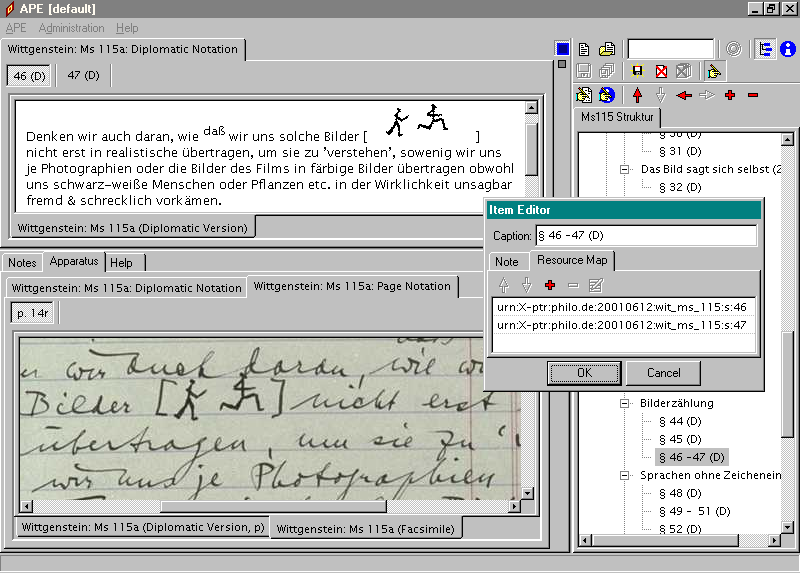 APE [default]
APE Administration Help
Wittgenstein: Ms 115a: Diplomatic Notation
46 (D) 47 (D)
Denken wir auch daran, wie daß wir uns solche Bilder [ ]
nicht erst in realistische übertragen, um sie zu 'verstehen', sowenig wir uns
je Photographien oder die Bilder des Films in färbige Bilder übertragen obwohl
uns schwarz–weiße Menschen oder Pflanzen etc. in der Wirklichkeit unsagbar
fremd & schrecklich vorkämen.
Wittgenstein: Ms 115a (Diplomatic Version)
Notes Apparatus Help
Wittgenstein: Ms 115a: Diplomatic Notation Wittgenstein: Ms 115a: Page Notation
p. 14r
wir auch daran, wie
Bilder [ ] nicht erst
übertragen, um sie zu '
wir uns je Photographien
Wittgenstein: Ms 115a (Diplomatic Version, p) Wittgenstein: Ms 115a (Facsimile)
Ms115 Struktur
§ 30 (D)
§ 31 (D)
Das Bild sagt sich selbst (2
§ 32 (D)
Item Editor
Caption: § 46 -47 (D)
Note Resource Map
urn:X-ptr:philo.de:20010612:wit_ms_115:s:46
urn:X-ptr:philo.de:20010612:wit_ms_115:s:47
OK Cancel
Bilderzählung
§ 44 (D)
§ 45 (D)
§ 46 -47 (D)
Sprachen ohne Zeichenein
§ 48 (D)
§ 49 - 51 (D)
§ 52 (D)